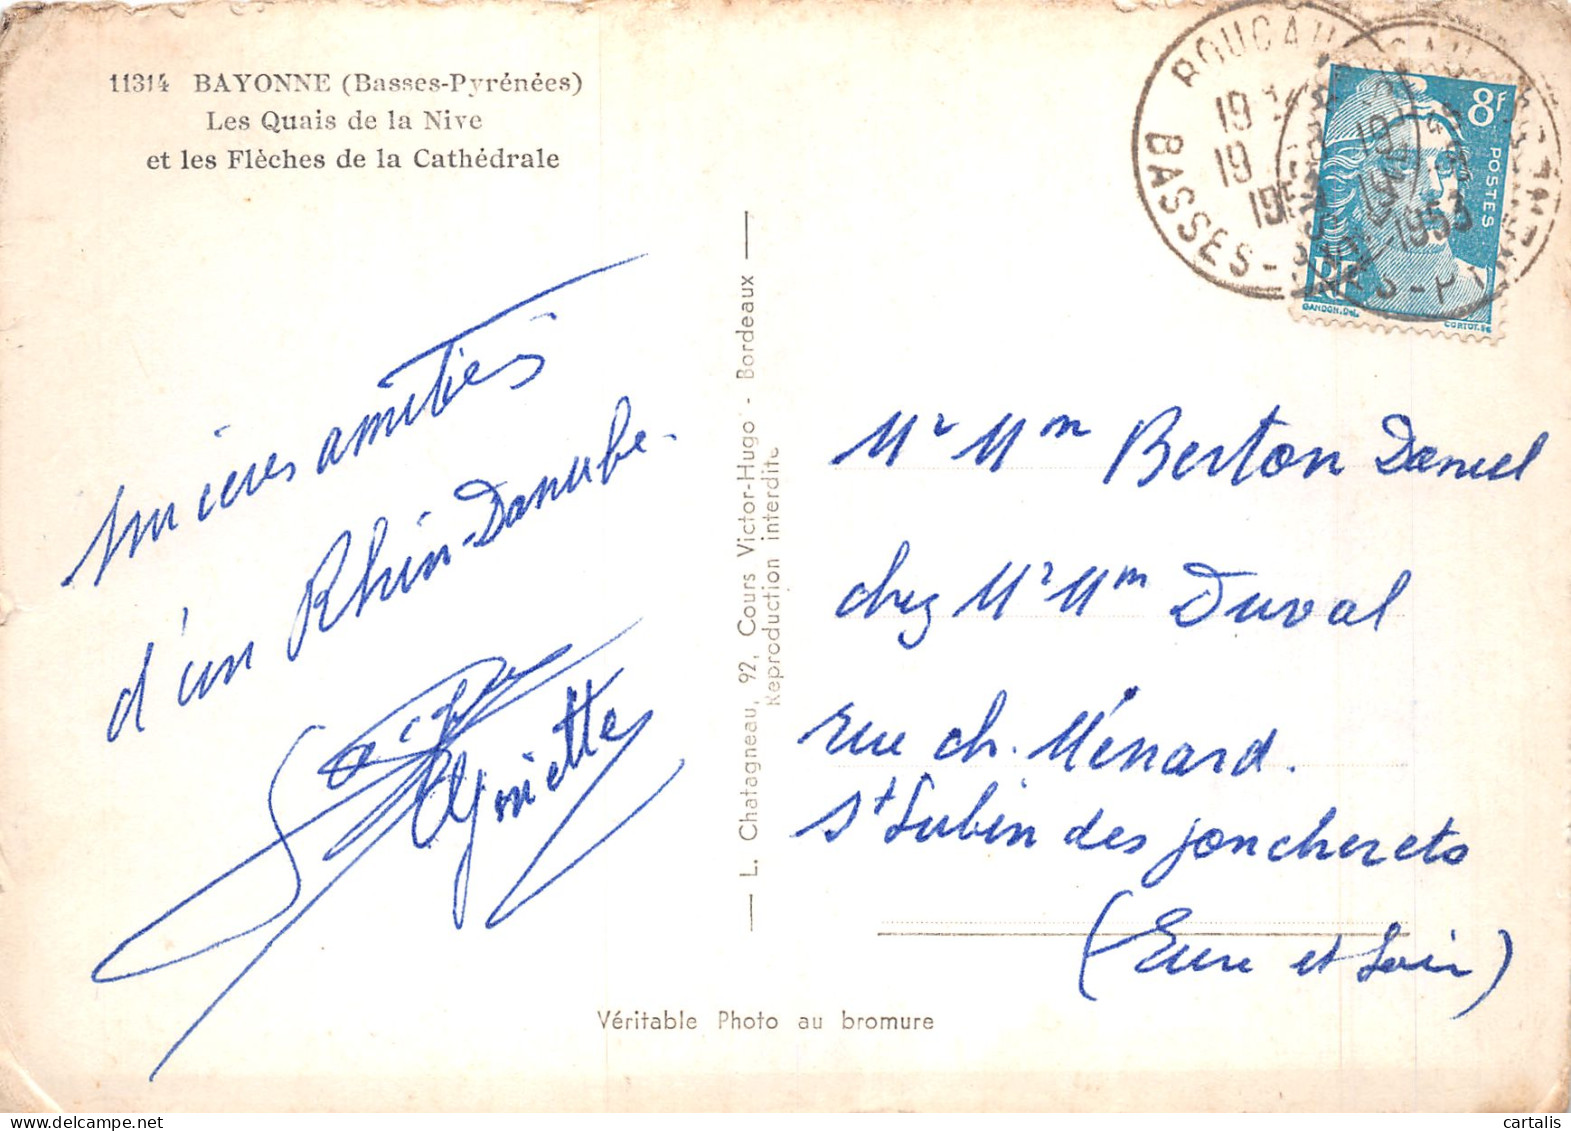 11314 BAYONNE (Basses-Pyrénées)
Les Quais de la Nive
et les Flèches de la Cathédrale
amitiés
d'un Rhin-Danube.
Ginette
L. Chatagneau, 92, Cours Victor-Hugo - Bordeaux
Reproduction interdite
Véritable Photo au bromure
BOUCAU
BASSES-P
19
19
1953
8f
POSTES
RF
GANDON.Del.
CORTOT.Sc
Mr Mm Berton Daniel
chez Mr Mm Duval
rue ch. Ménard.
St Lubin des joncherets
(Eure et Loir)
cartalis